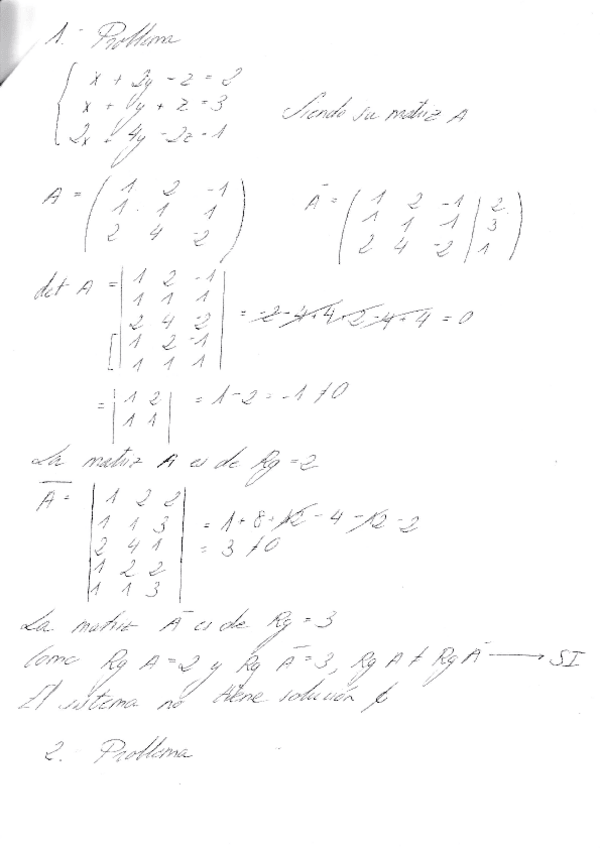 1. Problema
x + 2y - z = 2
x + y + z = 3
2x + 4y - 2z = 1
Siendo su matriz A
A = ( 1 2 -1
1 1 1
2 4 -2 )
Ā = ( 1 2 -1 | 2
1 1 1 | 3
2 4 -2 | 1 )
det A = | 1 2 -1
1 1 1
2 4 2
1 2 -1
1 1 1 | = -2 - 4 + 4 + 2 - 4 + 4 = 0
= | 1 2
1 1 | = 1 - 2 = -1 ≠ 0
La matriz A es de Rg = 2
Ā = | 1 2 2
1 1 3
2 4 1
1 2 2
1 1 3 | = 1 + 8 + 12 - 4 - 12 - 2
= 3 ≠ 0
La matriz Ā es de Rg = 3
Como Rg A = 2 y Rg Ā = 3, Rg A ≠ Rg Ā → SI
El sistema no tiene solución
2. Problema